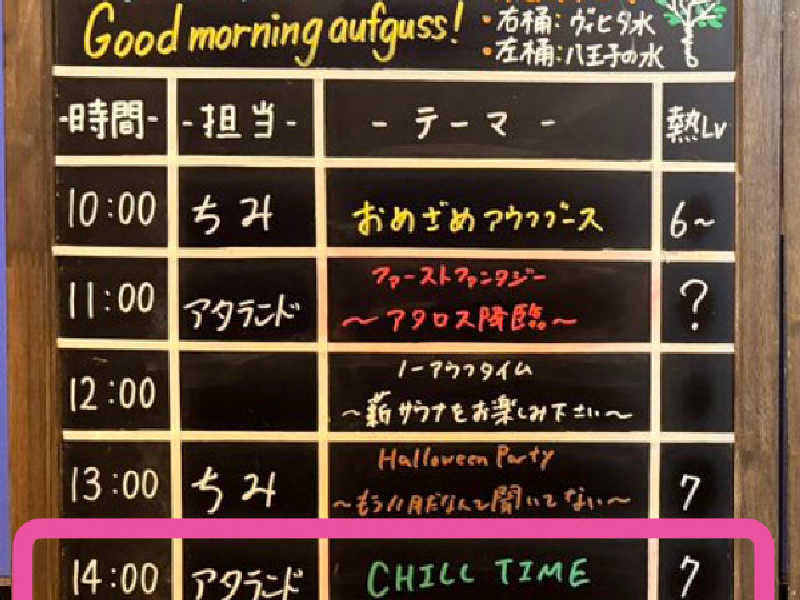 Good morning aufguss!
・右桶:ヴィヒタ水
・左桶:八王子の水
-時間- -担当- -テーマ- 熱Lv
10:00 ちみ おめざめアウフグース 6~
11:00 アタランド ファーストファンタジー ?
~アタロス降臨~
12:00 ノーアウフタイム
~薪サウナをお楽しみ下さい~
13:00 ちみ Halloween Party 7
~もう11月だなんて聞いてない~
14:00 アタランド CHILL TIME 7